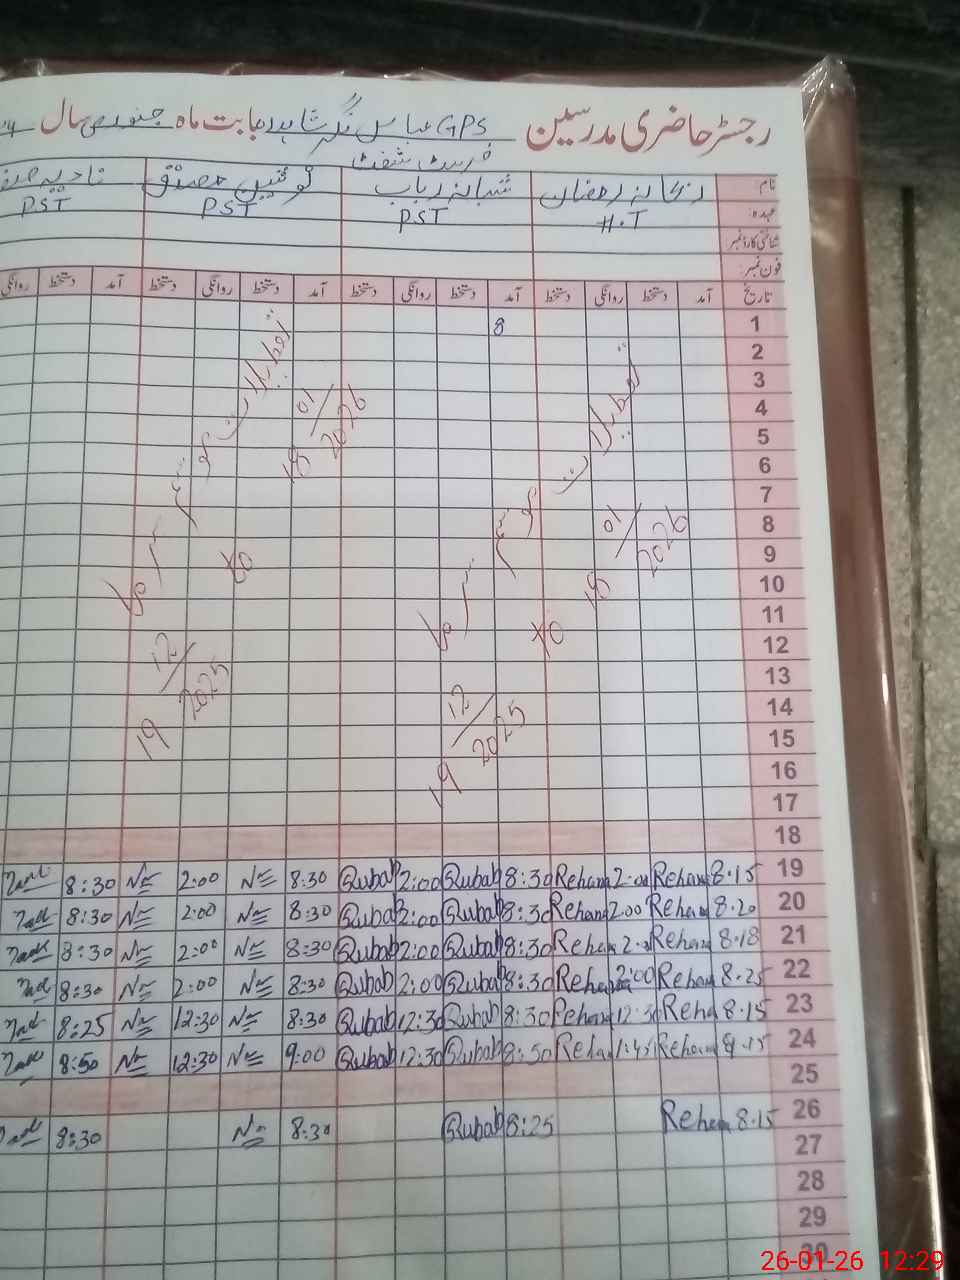 رجسٹر حاضری مدرسین GPS عباس نگر شاہدرہ بابت ماہ جنوری سال
فرسٹ شفٹ
نام ریحانہ رمضان شبانہ رباب نوشین صدیق نادیہ
عہدہ H.T PST PST PST
شناختی کارڈ نمبر
فون نمبر
تاریخ آمد دستخط روانگی دستخط آمد دستخط روانگی دستخط آمد دستخط روانگی دستخط آمد دستخط روانگی
1 8
2
3
4
5
6
7
8
9
10
11
12
13
14
15
16
17
18
تعطیلات موسم سرما
19/12/2025 to 18/01/2026
تعطیلات موسم سرما
19/12/2025 to 18/01/2026
19 8.15 Rehana 2:00 Rehana 8:30 Rubab 2:00 Rubab 8:30 2:00 8:30
20 8.20 Rehana 2:00 Rehana 8:30 Rubab 2:00 Rubab 8:30 2:00 8:30
21 8.18 Rehana Rehana 8:30 Rubab 2:00 Rubab 8:30 2:00 8:30
22 8.25 Rehana 2:00 Rehana 8:30 Rubab 2:00 Rubab 8:30 2:00 8:30
23 8.15 Reha 12:30 Rehana 8:30 Rubab 12:30 Rubab 8:30 12:30 8:25
24 Rehana 1:45 Reha 8:50 Rubab 12:30 Rubab 9:00 12:30 8:50
25
26 8.15 Rehana 8:25 Rubab 8:30 8:30
27
28
29
30
26-01-26 12:29